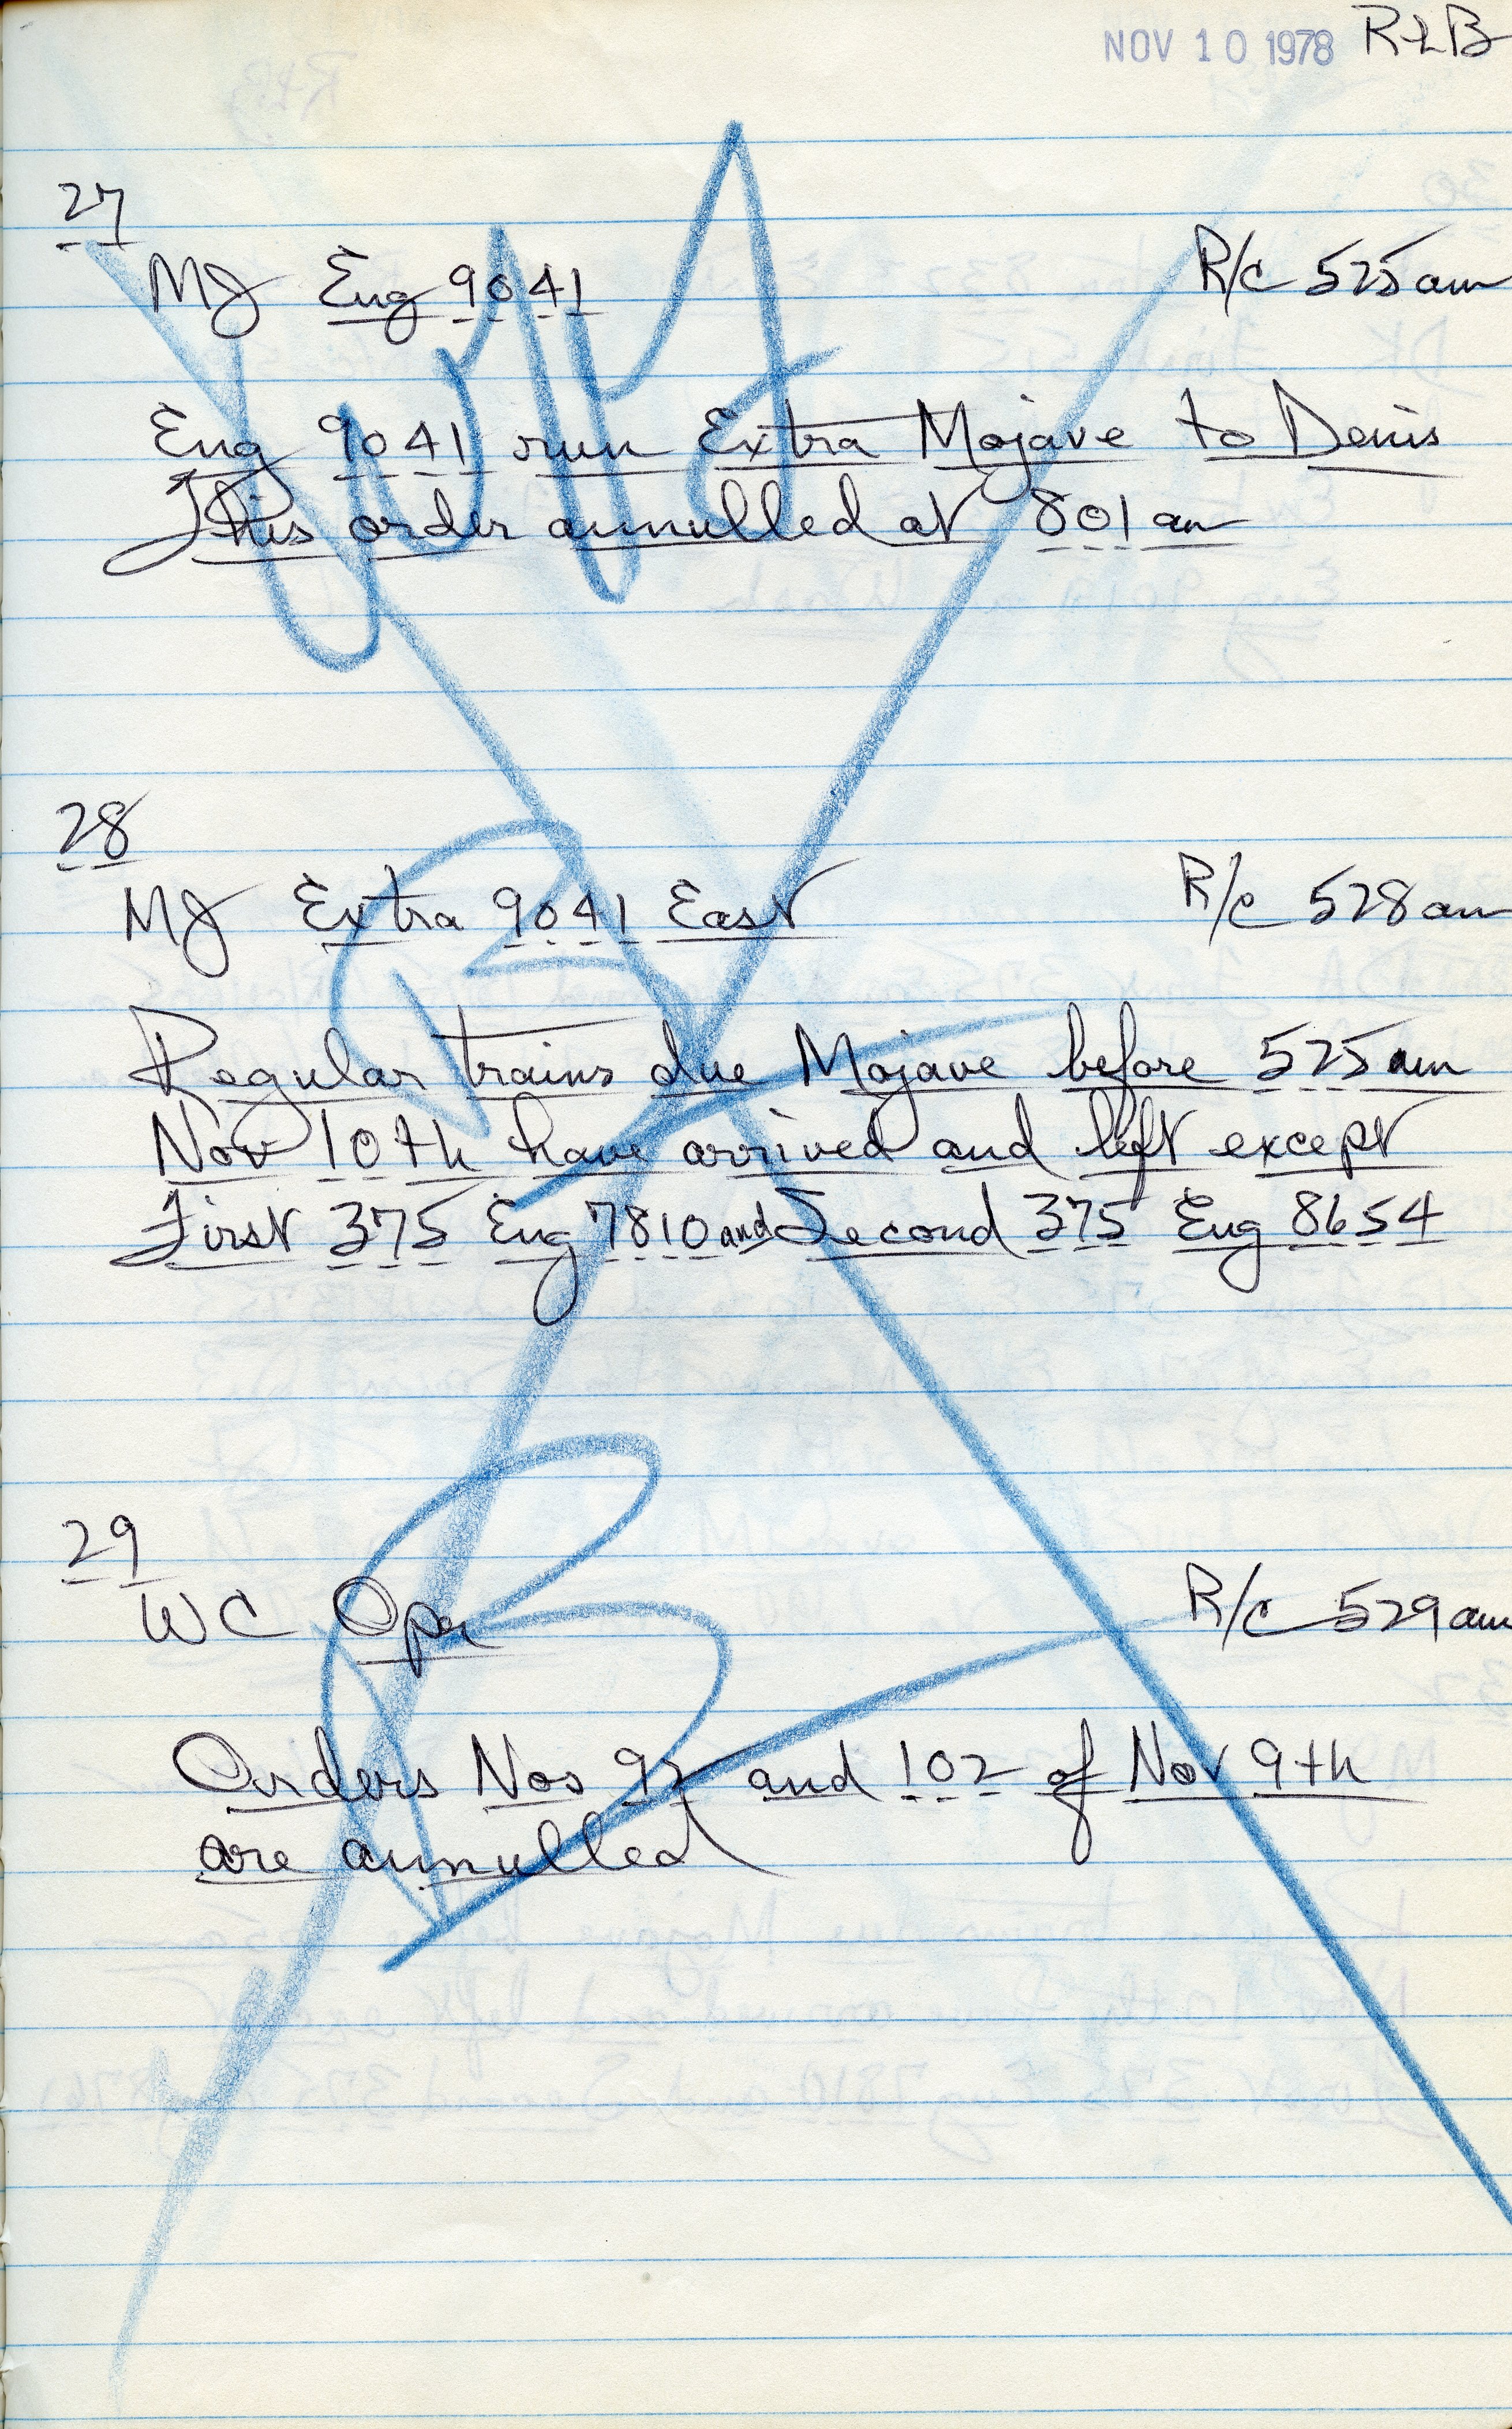 NOV 10 1978 RLB
27
MJ Eng 9041 R/c 525am
Eng 9041 run Extra Mojave to Denis
This order annulled at 801am
28
MJ Extra 9041 East R/c 528am
Regular trains due Mojave before 525am
Nov 10th have arrived and left except
First 375 Eng 7810 and Second 375 Eng 8654
29
WC Opr R/c 529am
Orders Nos 92 and 102 of Nov 9th
are annulled